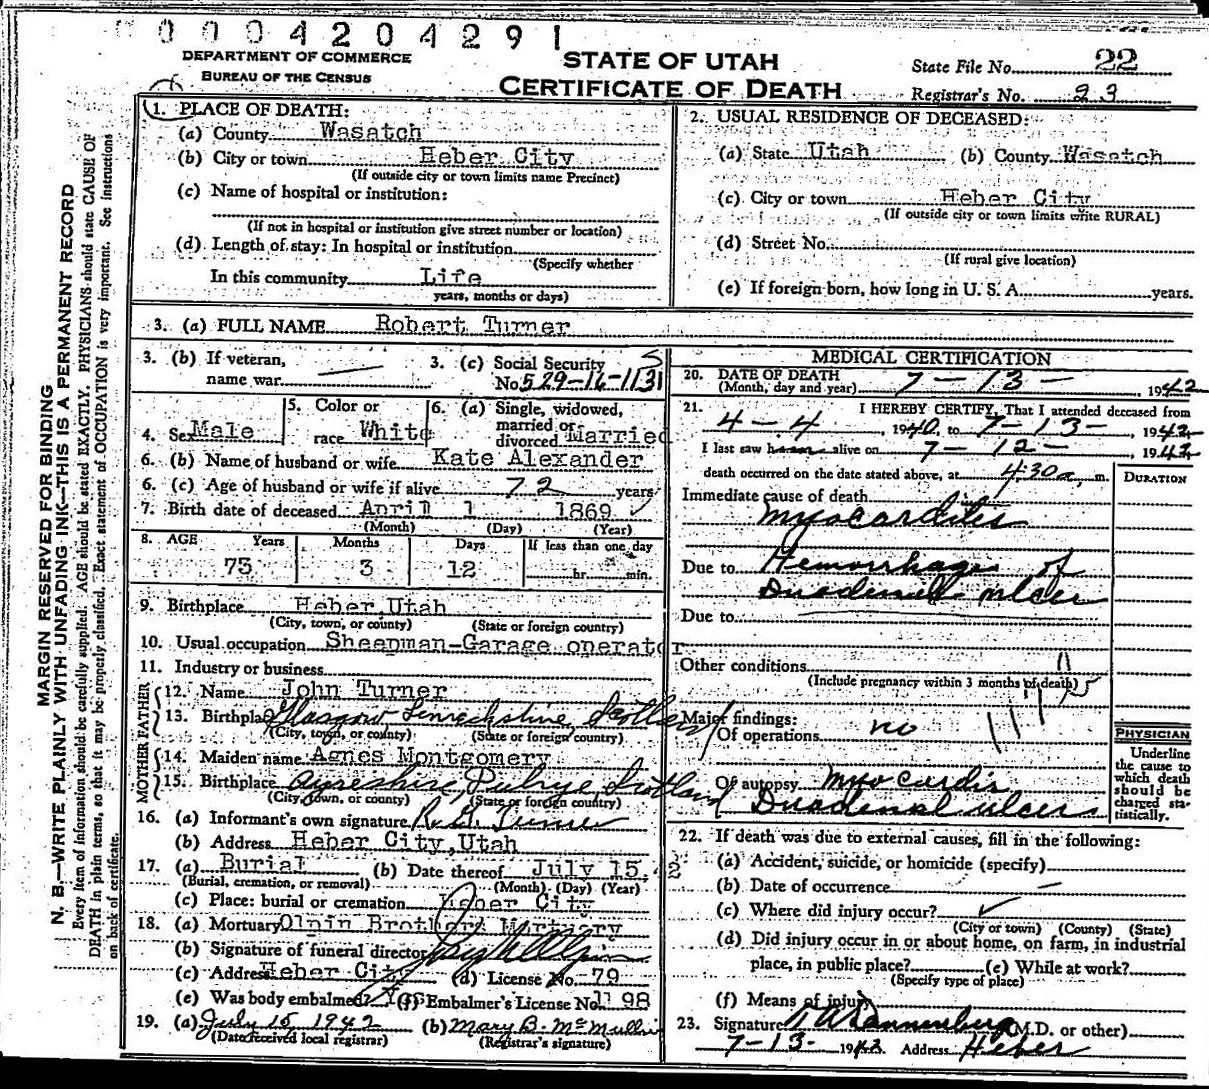 0004204291
DEPARTMENT OF COMMERCE
BUREAU OF THE CENSUS
STATE OF UTAH
CERTIFICATE OF DEATH
State File No. 22
Registrar's No. 23
MARGIN RESERVED FOR BINDING
N. B.—WRITE PLAINLY WITH UNFADING INK—THIS IS A PERMANENT RECORD
Every item of information should be carefully supplied. AGE should be stated EXACTLY. PHYSICIANS should state CAUSE OF
DEATH in plain terms, so that it may be properly classified. Exact statement of OCCUPATION is very important. See instructions
on back of certificate.
1. PLACE OF DEATH:
(a) County Wasatch
(b) City or town Heber City
(If outside city or town limits name Precinct)
(c) Name of hospital or institution:
(If not in hospital or institution give street number or location)
(d) Length of stay: In hospital or institution
(Specify whether
In this community Life
years, months or days)
2. USUAL RESIDENCE OF DECEASED:
(a) State Utah (b) County Wasatch
(c) City or town Heber City
(If outside city or town limits write RURAL)
(d) Street No.
(If rural give location)
(e) If foreign born, how long in U. S. A. years.
3. (a) FULL NAME Robert Turner
3. (b) If veteran,
name war
3. (c) Social Security
No.
4. Sex Male
5. Color or
race White
6. (a) Single, widowed,
married or
divorced Married
6. (b) Name of husband or wife Kate Alexander
6. (c) Age of husband or wife if alive 72 years
7. Birth date of deceased April 1 1869
(Month) (Day) (Year)
8. AGE Years Months Days If less than one day
73 3 12 hr. min.
9. Birthplace Heber, Utah
(City, town, or county) (State or foreign country)
10. Usual occupation Sheepman-Garage operator
11. Industry or business
FATHER
12. Name John Turner
13. Birthplace Glasgow Scotland
(City, town, or county) (State or foreign country)
MOTHER
14. Maiden name Agnes Montgomery
15. Birthplace Ayreshire, Scotland
(City, town, or county) (State or foreign country)
16. (a) Informant's own signature Turner
(b) Address Heber City, Utah
17. (a) Burial (b) Date thereof July 15, 42
(Burial, cremation, or removal) (Month) (Day) (Year)
(c) Place: burial or cremation Heber City
18. (a) Mortuary Olpin Brothers Mortuary
(b) Signature of funeral director
(c) Address Heber City (d) License No. 79
(e) Was body embalmed? Yes (f) Embalmer's License No. 98
19. (a) July 15, 1942 (b) Mary B. McMullin
(Date received local registrar) (Registrar's signature)
MEDICAL CERTIFICATION
20. DATE OF DEATH
(Month, day and year) 7-13- 1942
21. I HEREBY CERTIFY, That I attended deceased from
4-4, 1940, to 7-13-, 1942
I last saw him alive on 7-12-, 1942
death occurred on the date stated above, at 4:30 a. m.
DURATION
Immediate cause of death
Myocardites
Due to Hemorrhage of
Duodenal ulcer
Due to
Other conditions
(Include pregnancy within 3 months of death)
Major findings:
Of operations no
Of autopsy myocardis
Duodenal ulcers
PHYSICIAN
Underline
the cause to
which death
should be
charged sta-
tistically.
22. If death was due to external causes, fill in the following:
(a) Accident, suicide, or homicide (specify)
(b) Date of occurrence —
(c) Where did injury occur?
(City or town) (County) (State)
(d) Did injury occur in or about home, on farm, in industrial
place, in public place? (e) While at work?
(Specify type of place)
(f) Means of injury
23. Signature (M.D. or other)
7-13- 1942 Address Heber